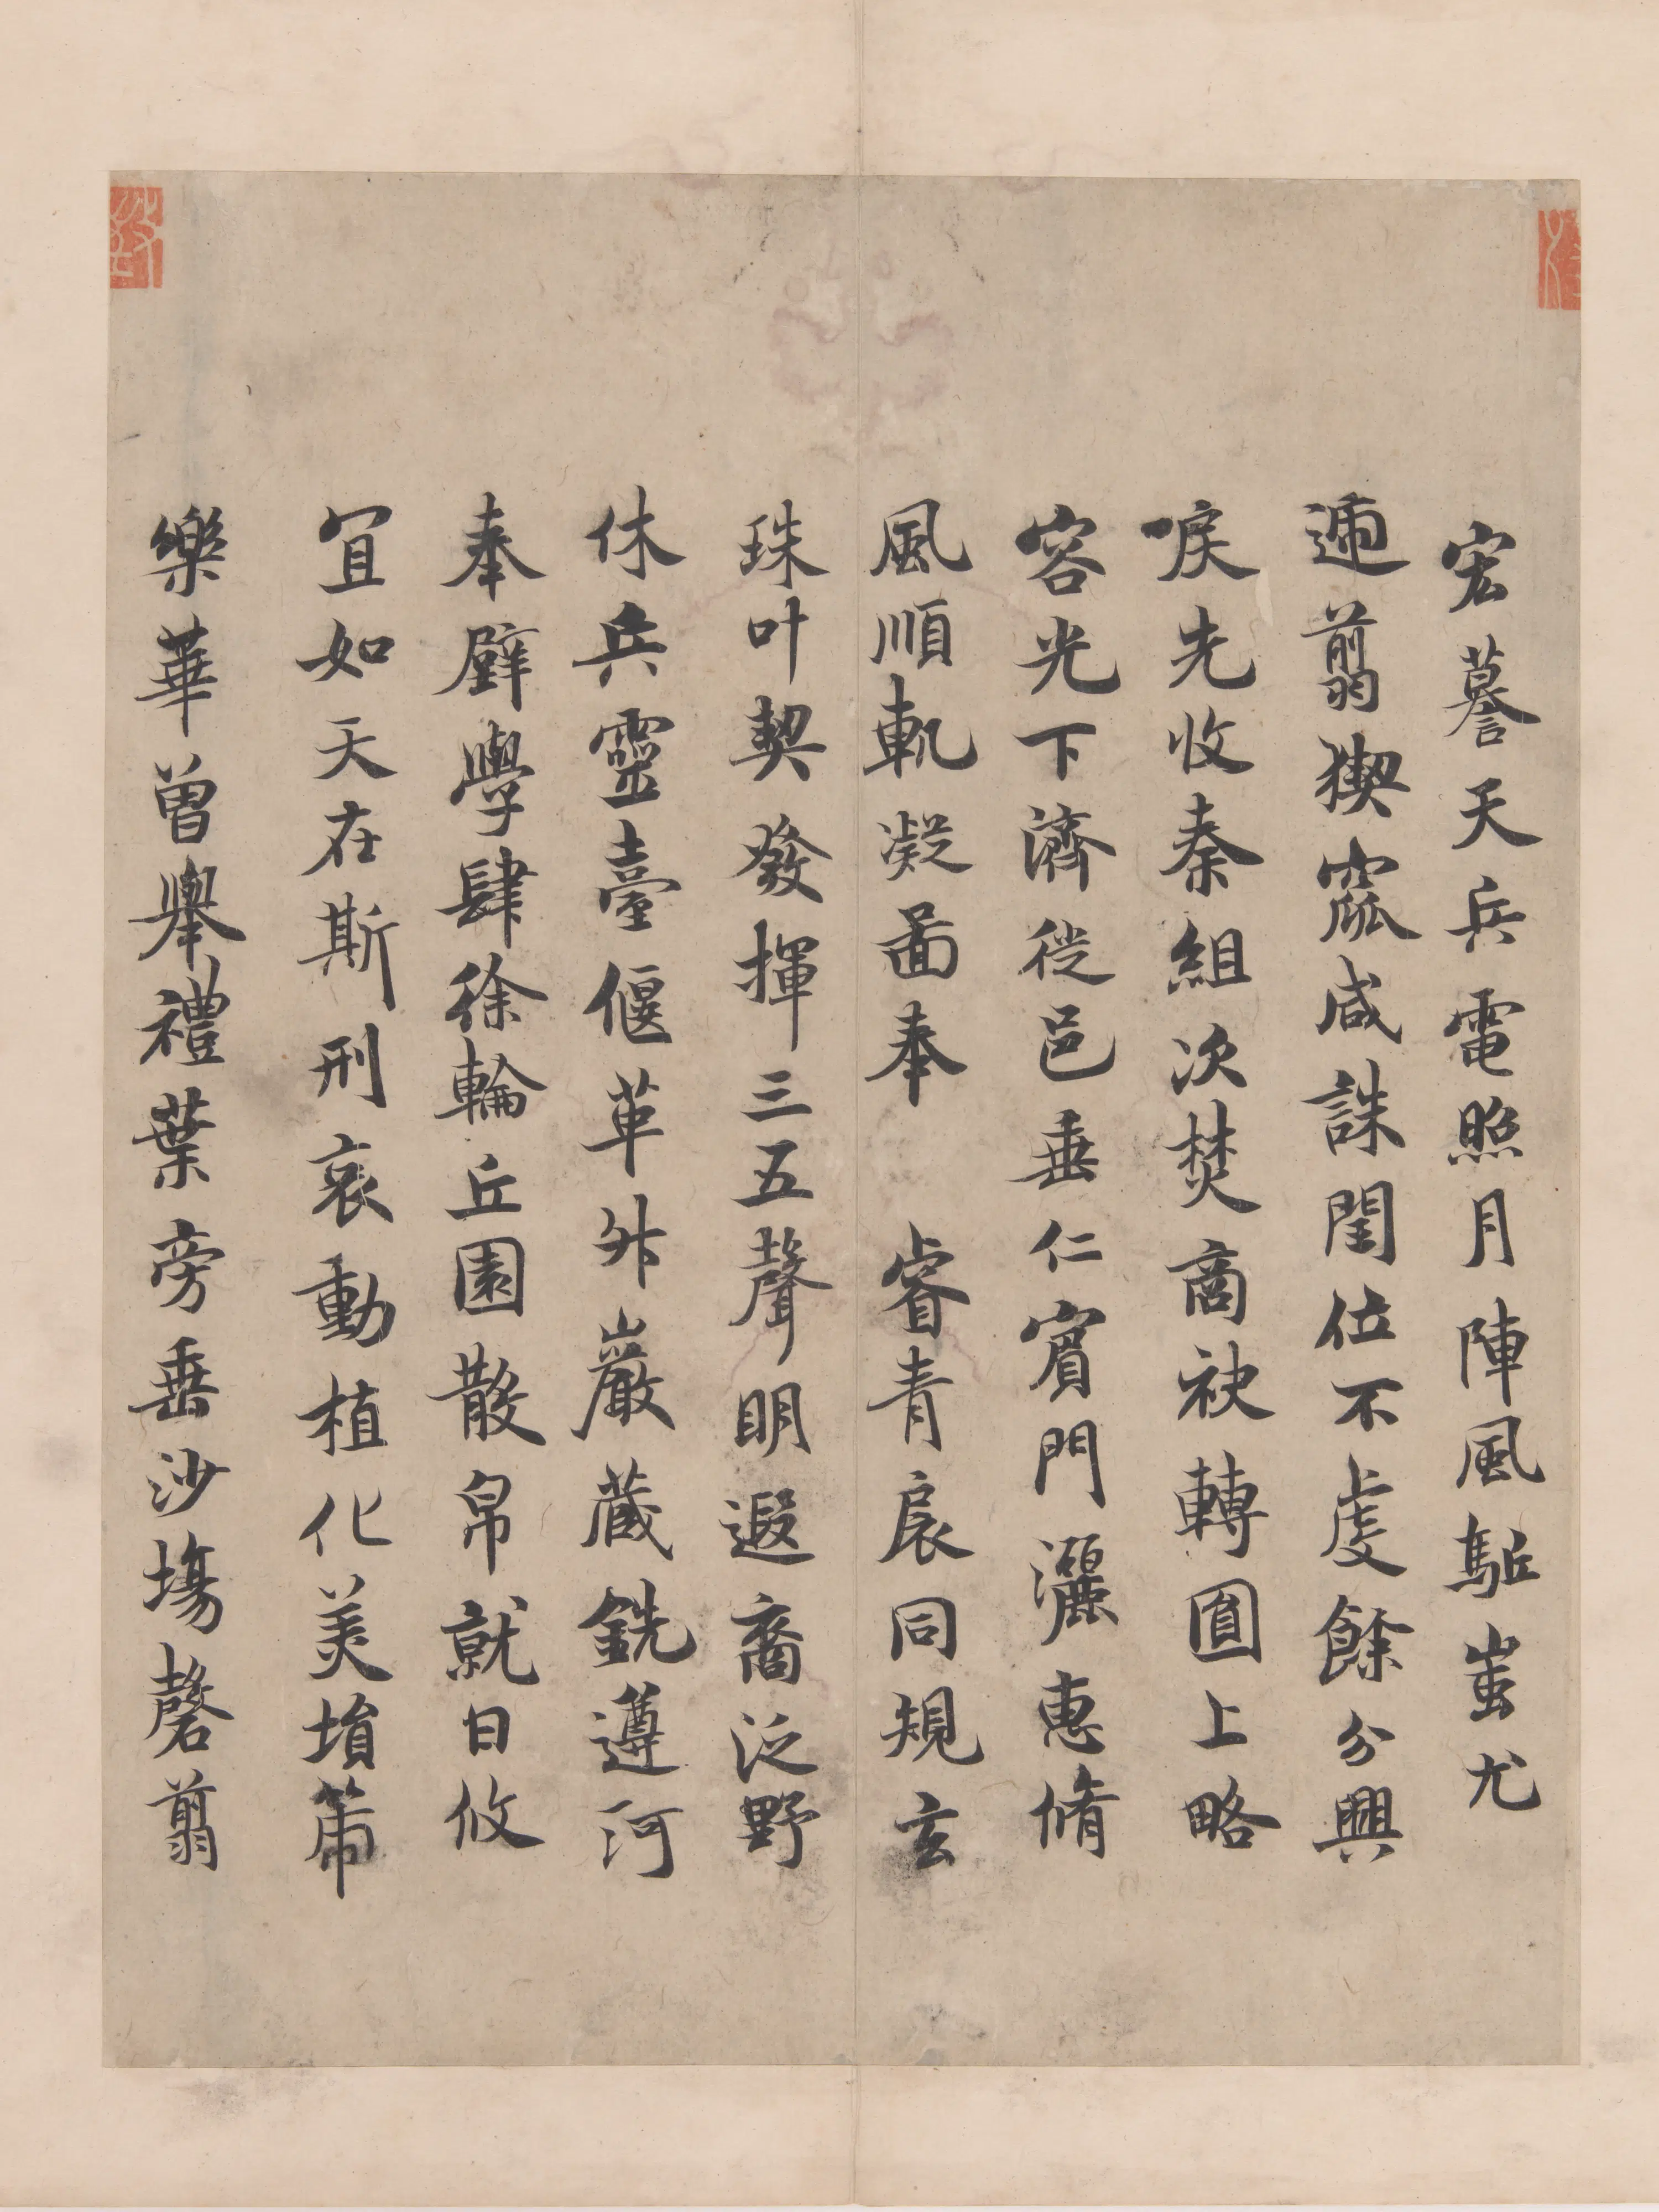 宏謩天兵電照月陣風駈蚩尤
遄翦猰窳咸誅閏位不虔餘分興
唳先收秦組次焚商袂轉圓上略
容光下濟徙邑垂仁賓門灑惠脩
風順軌凝啚奉睿青扆同規玄
珠叶契發揮三五聲明遐裔泛野
休兵靈臺偃革升巖蔵銑遵河
奉璧學肆徐輪丘園散帛就日攸
宜如天在斯刑哀動植化美埍箒
樂華曽舉禮葉旁垂沙塲磬翦